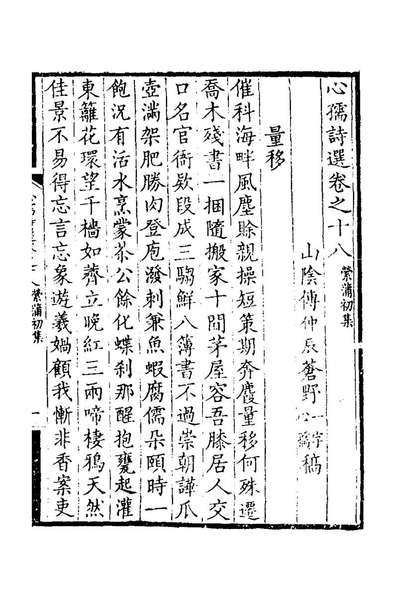 心孺詩選卷之十八 縈蒲初集
山陰傅仲辰蒼野一字心孺稿
量移
催科海畔風塵賒親操短策期奔麚量移何殊遷
喬木殘書一捆隨搬家十間茅屋容吾膝居人交
口名官衙欵段成三騶鮮八簿書不過崇朝譁瓜
壺滿架肥勝肉登庖潑剌兼魚蝦腐儒朵頤時一
飽況有活水烹蒙茶公餘化蝶刹那醒抱甕起灌
東籬花環望千檣如薺立晚紅三兩啼棲鴉天然
佳景不易得忘言忘象遊羲媧顧我慚非香案吏
縈蒲初集 一